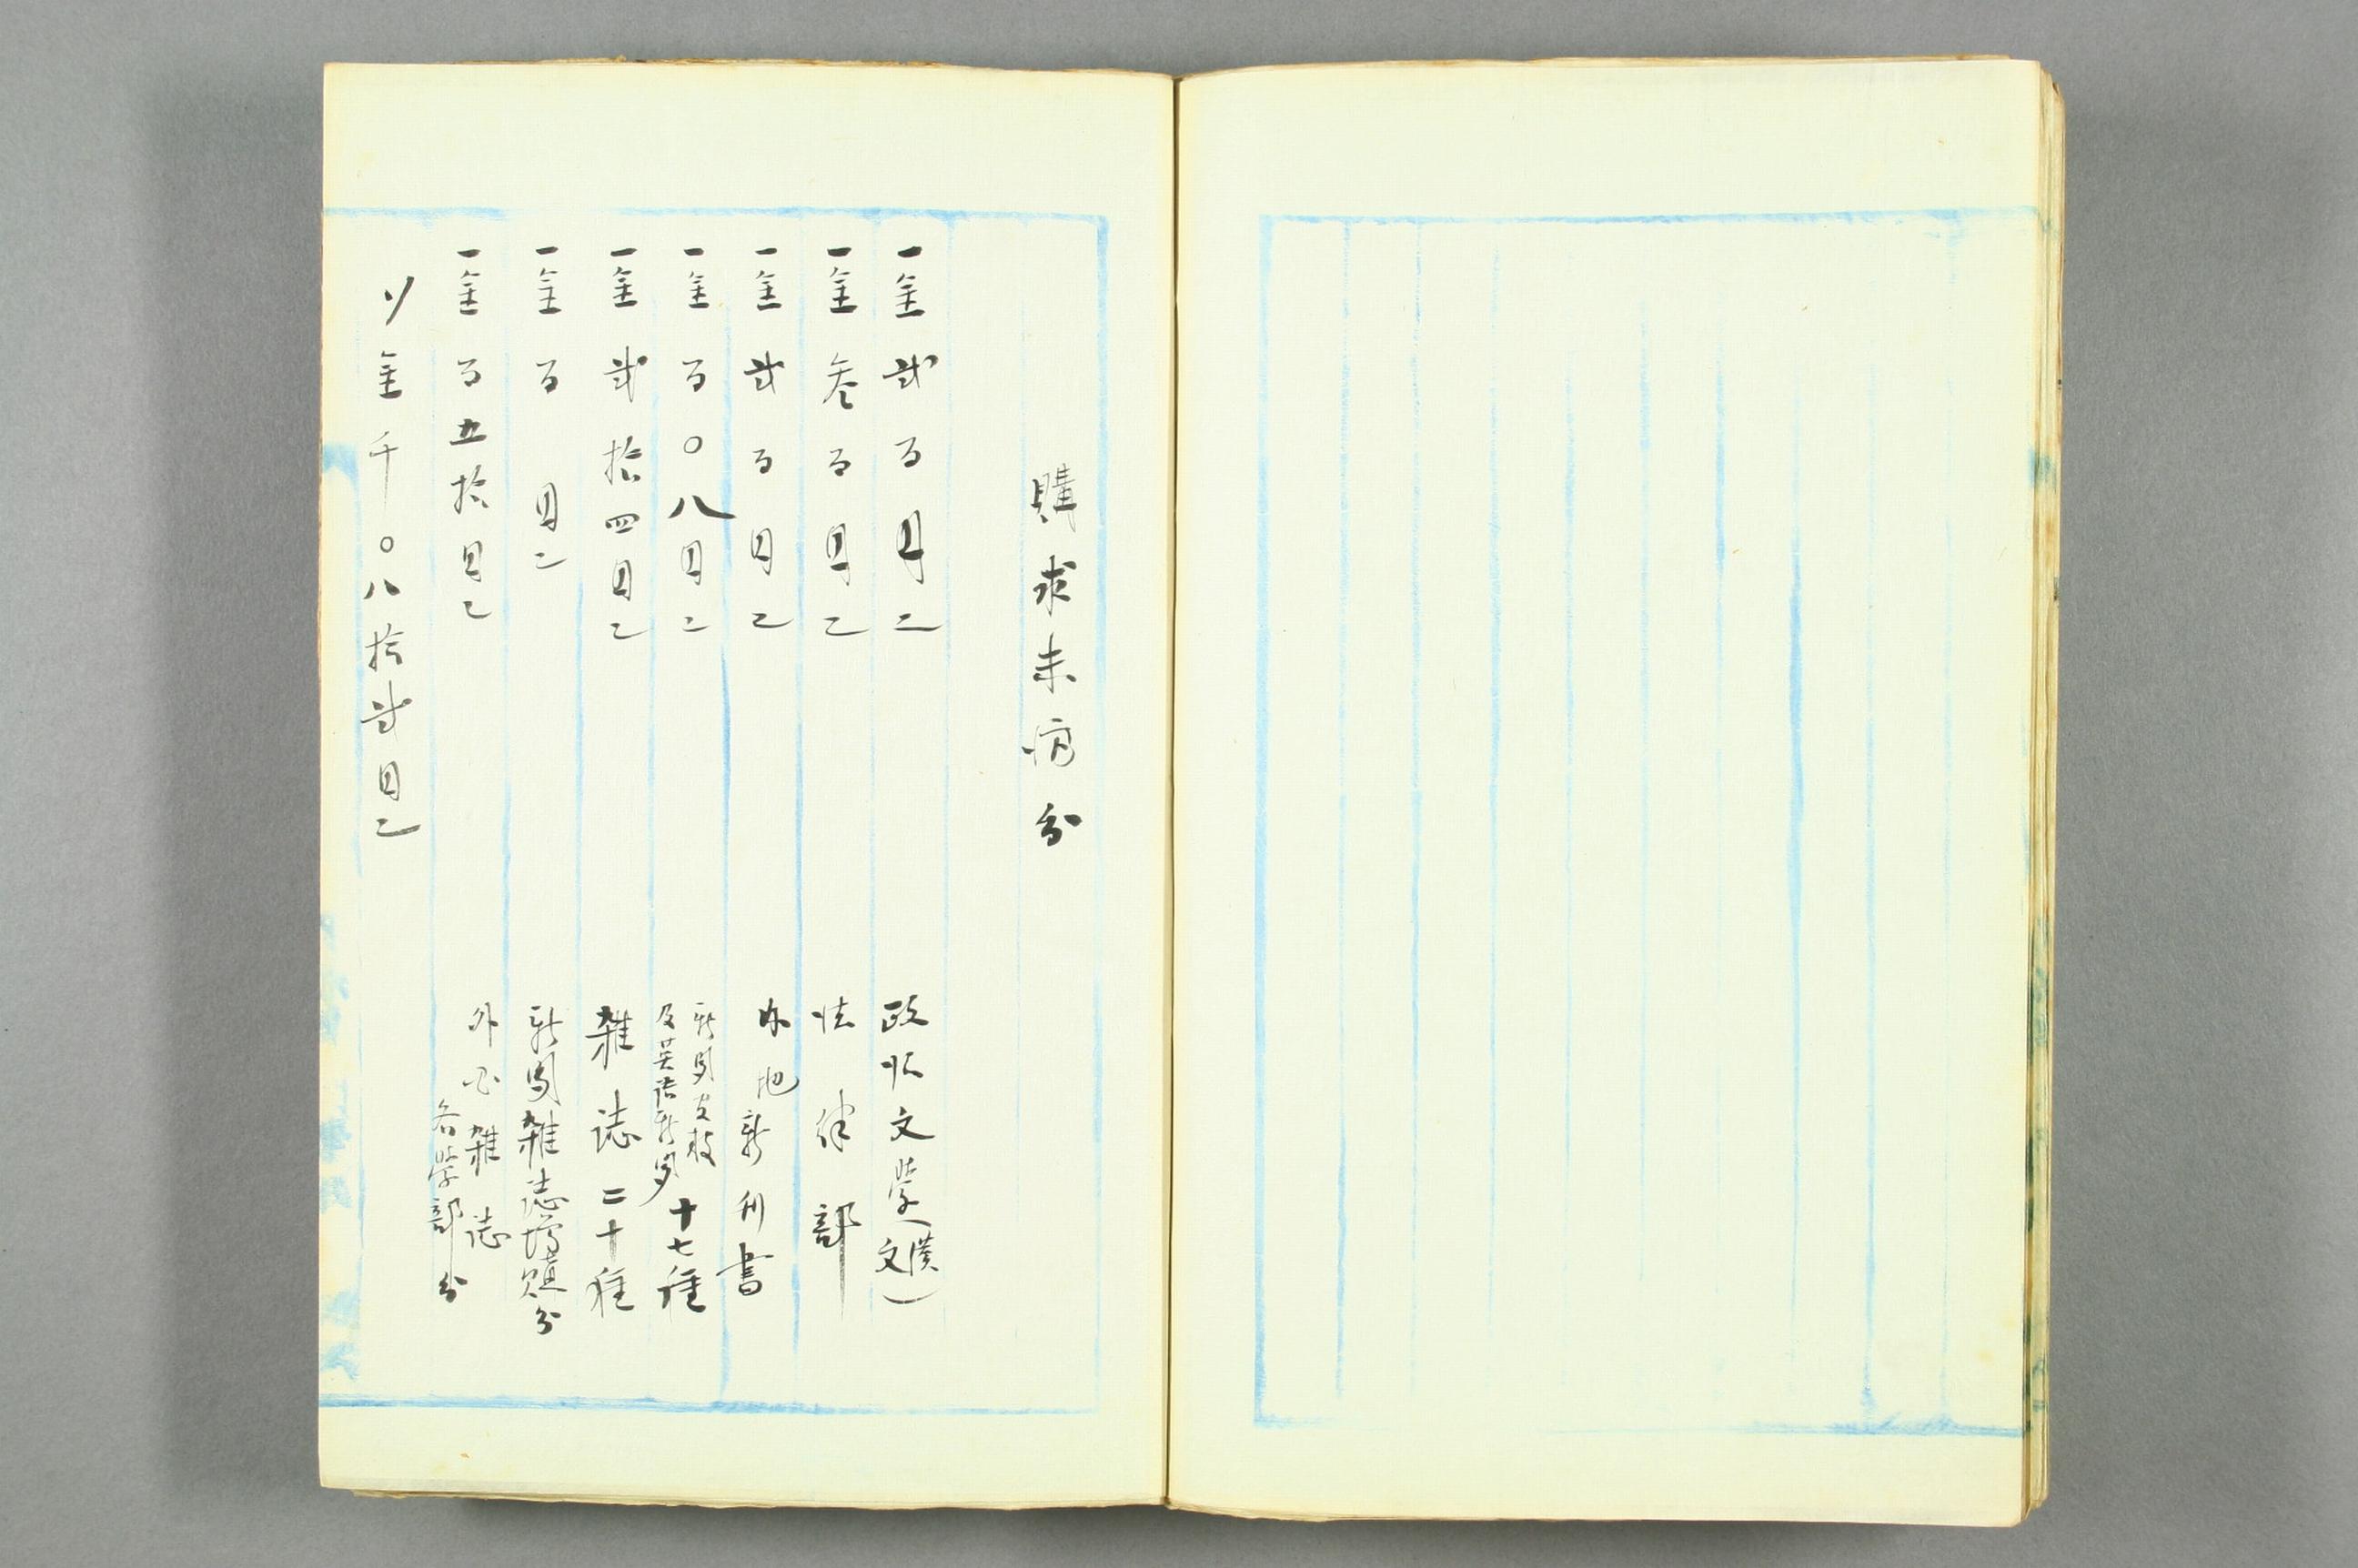 購求未済分
一金弐百円也 政治文学(漢文)
一金参百円也 法律部
一金弐百円也 内地新刊書
一金百〇八円也 新聞 及英語新聞 十七種
一金弐拾四円也 雑誌二十種
一金百円也 新聞雑誌増殖分
一金百五拾円也 外国雑誌 各学部分
〆金千〇八拾弐円也